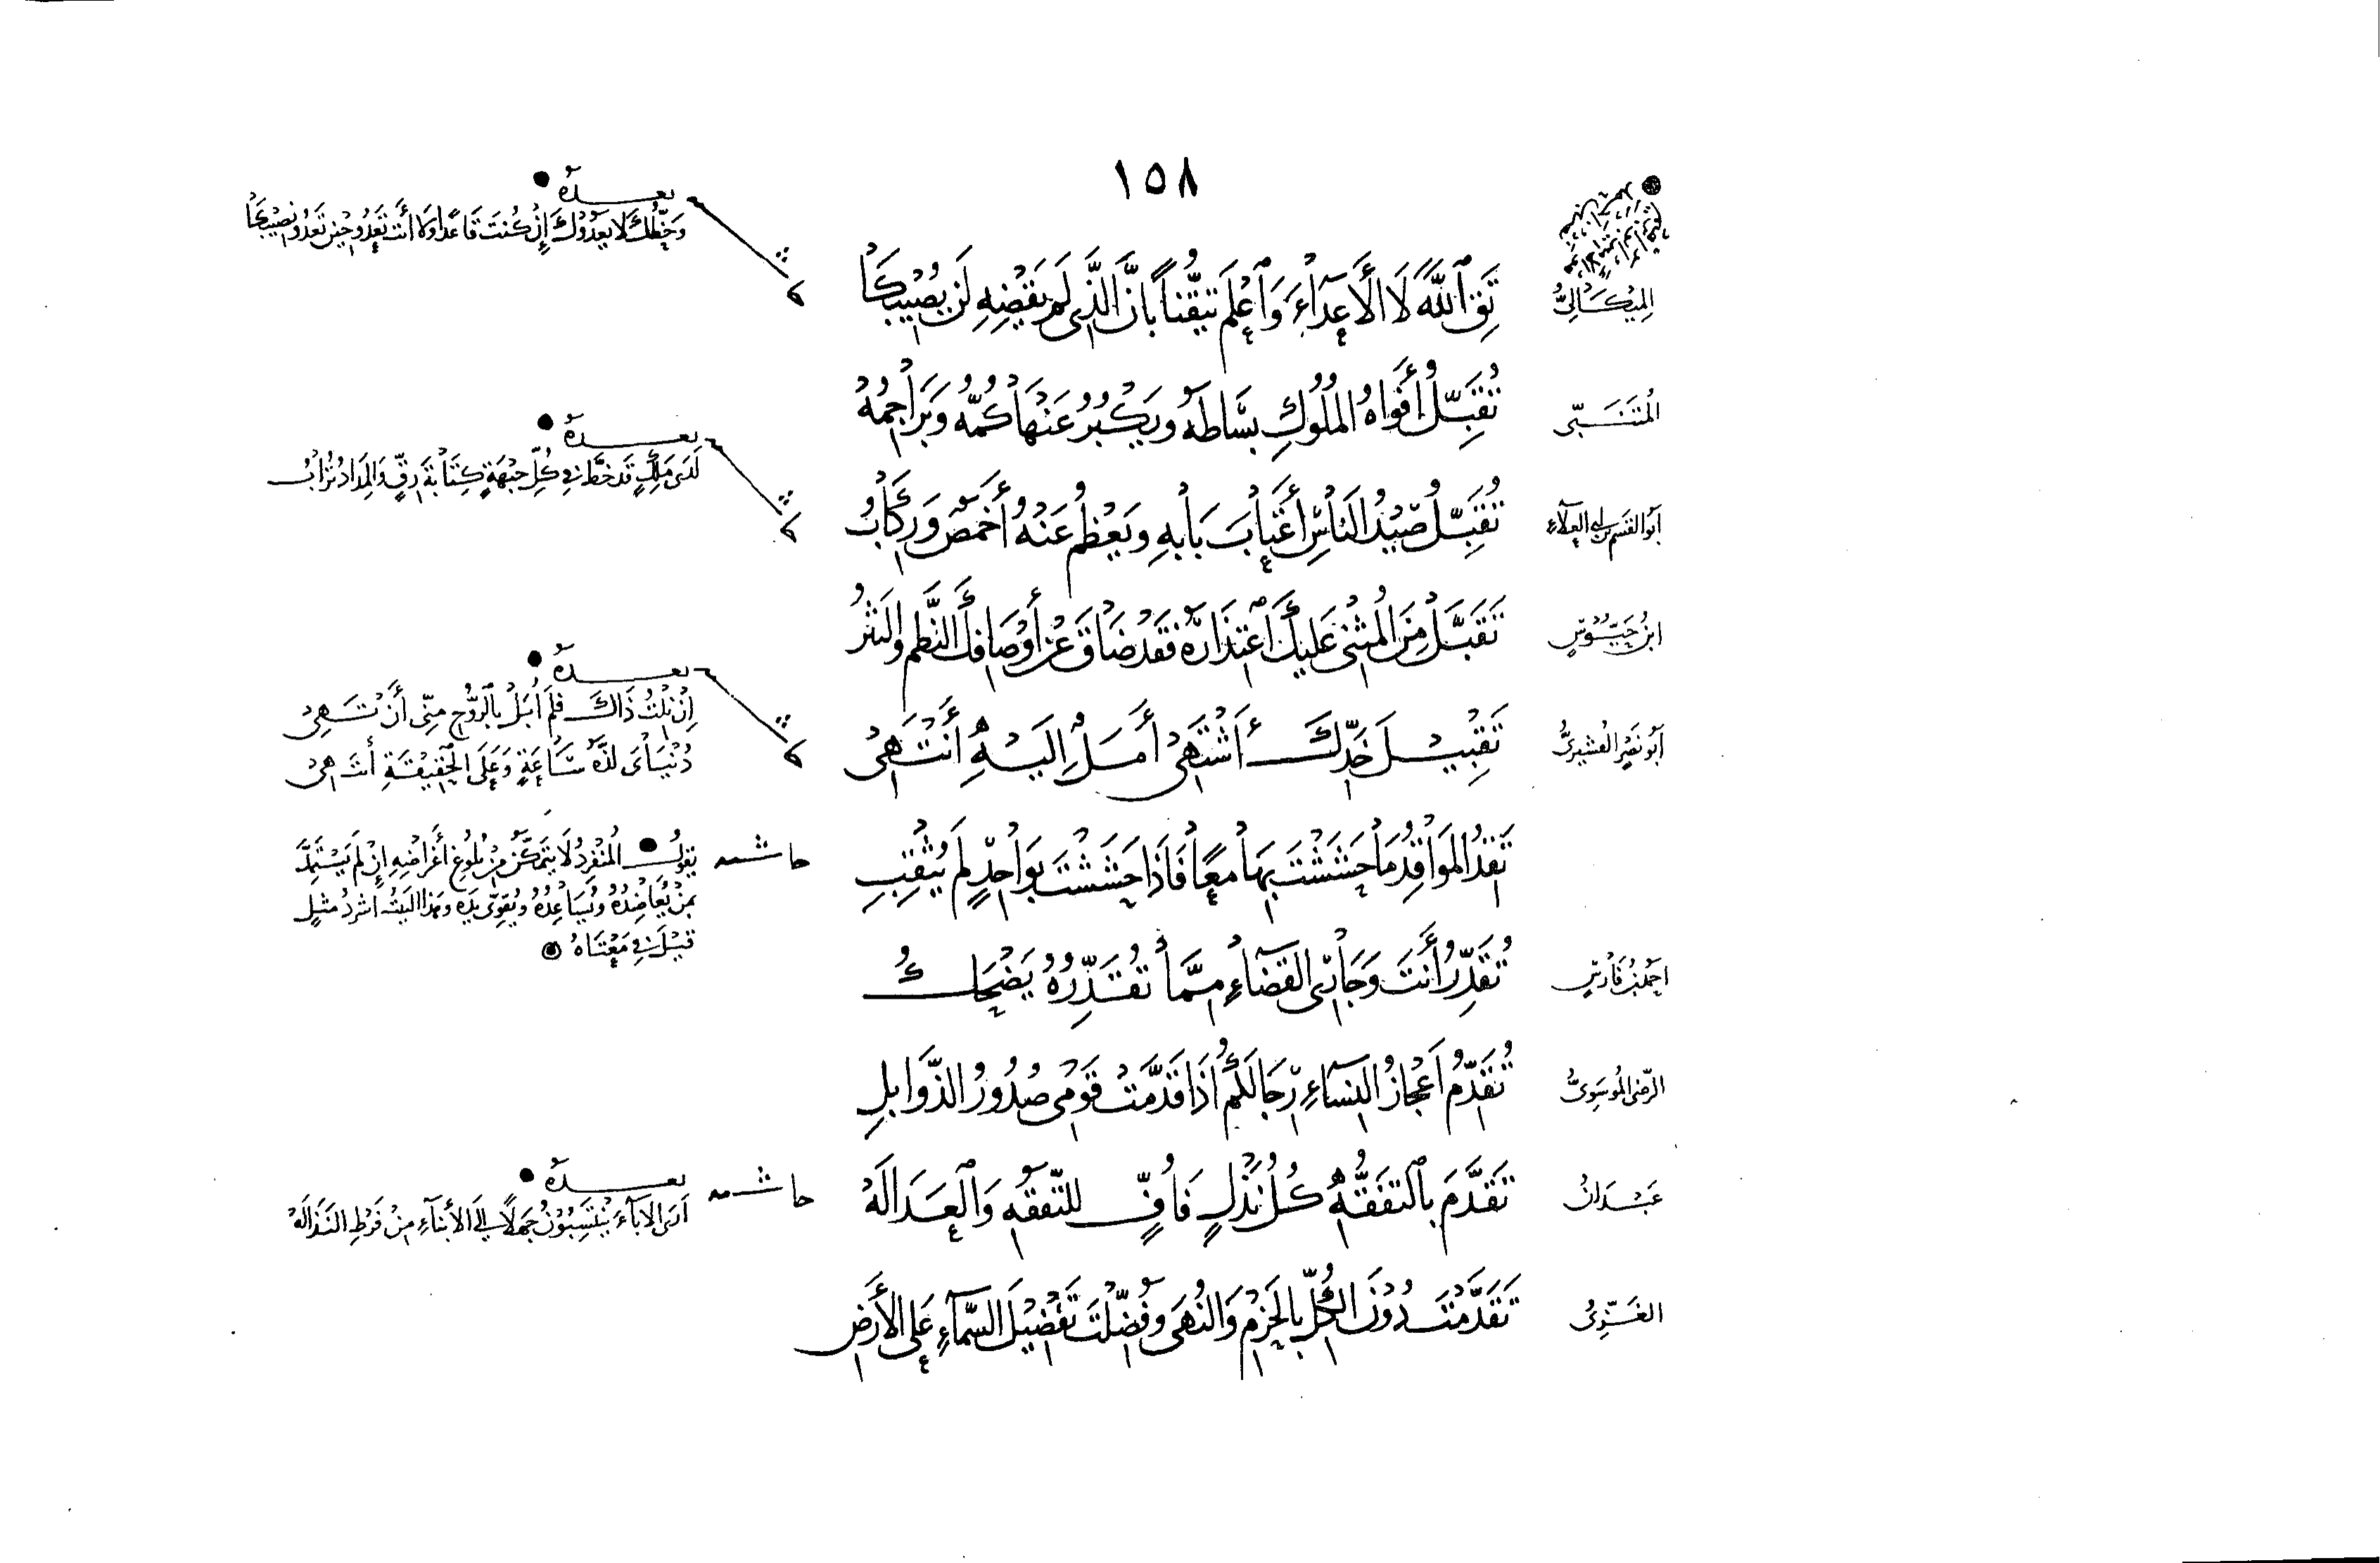 ١٥٨
الميكالي
ثِقِ اللَّهَ لَا الْأَعْدَاءَ وَاعْلَمْ تَيَقُّنًا بِأَنَّ الَّذِي لَمْ يَقْضِهِ لَنْ يُصِيبَكَا
بعده
وَحَظُّكَ لَا يَعْدُوكَ إِنْ كُنْتَ قَاعِدًا وَلَا أَنْتَ تَعْدُو حِينَ تَعْدُو نَصِيبَكَا
المتنبي
تُقَبِّلُ أَفْوَاهُ الْمُلُوكِ بِسَاطَهُ وَيَكْبُرُ عَنْهَا كُمُّهُ وَبَرَاجِمُهْ
أبو القسم بن أبي العلاء
تُقَبِّلُ صِيدُ النَّاسِ أَعْتَابَ بَابِهِ وَيَعْظُمُ عَنْهُ أَخْمَصٌ وَرِكَابُ
بعده
لَدَى مَلِكٍ قَدْ خَطَّ فِي كُلِّ جَبْهَةٍ كِتَابَةَ رِقٍّ وَالْمِدَادُ تُرَابُ
ابن حيوس
تَقَبَّلْ مِنَ الْمُثْنِي عَلَيْكَ اعْتِذَارَهُ فَقَدْ ضَاقَ عَنْ أَوْصَافِكَ النَّظْمُ وَالنَّثْرُ
أبو نصر القشيري
تَقْبِيلُ خَدِّكَ أَشْتَهِي أَمَلٌ إِلَيْهِ أَنْتَهِي
بعده
إِنْ نِلْتُ ذَاكَ فَلَمْ أُبَلْ بِالرُّوحِ مِنِّي أَنْ تَهِي
دُنْيَايَ لَذَّةُ سَاعَةٍ وَعَلَى الْحَقِيقَةِ أَنْتَ هِي
تَقِدُ الْمَوَاقِدُ مَا حَشَشْتَ بِهَا مَعًا فَإِذَا حَشَشْتَ بِوَاحِدٍ لَمْ يَثْقُبِ
حاشية
يقول المُنْفَرِدُ لَا يَتَمَكَّنُ مِنْ بُلُوغِ أَغْرَاضِهِ إِنْ لَمْ يَسْتَمِدَّ
بِمَنْ يُعَاضِدُهُ وَيُسَاعِدُهُ وَيُقَوِّي يَدَهُ وَهَذَا الْبَيْتُ أَشْرَدُ مَثَلٍ
قِيلَ فِي مَعْنَاهُ
أحمد بن فارس
تُقَدِّرُ أَنْتَ وَجَارِي الْقَضَاءِ مِمَّا تُقَدِّرُهُ يَضْحَكُ
الرضي الموسوي
تُقَدِّمُ أَعْجَازُ النِّسَاءِ رِجَالَكُمْ إِذَا قَدَّمَتْ قَوْمِي صُدُورُ الذَّوَابِلِ
عبدان
تَقَدَّمَ بِالتَّفَقُّهِ كُلُّ نَذْلٍ فَأُفٍّ لِلتَّفَقُّهِ وَالْعَدَالَهْ
حاشية
بعده
أَرَى الْآبَاءَ يَنْتَسِبُونَ جَهْلًا إِلَى الْأَبْنَاءِ مِنْ فَرْطِ النَّذَالَهْ
الغزي
تَقَدَّمْتَ دُونَ الْكُلِّ بِالْحَزْمِ وَالنُّهَى وَفُضِّلْتَ تَفْضِيلَ السَّمَاءِ عَلَى الْأَرْضِ